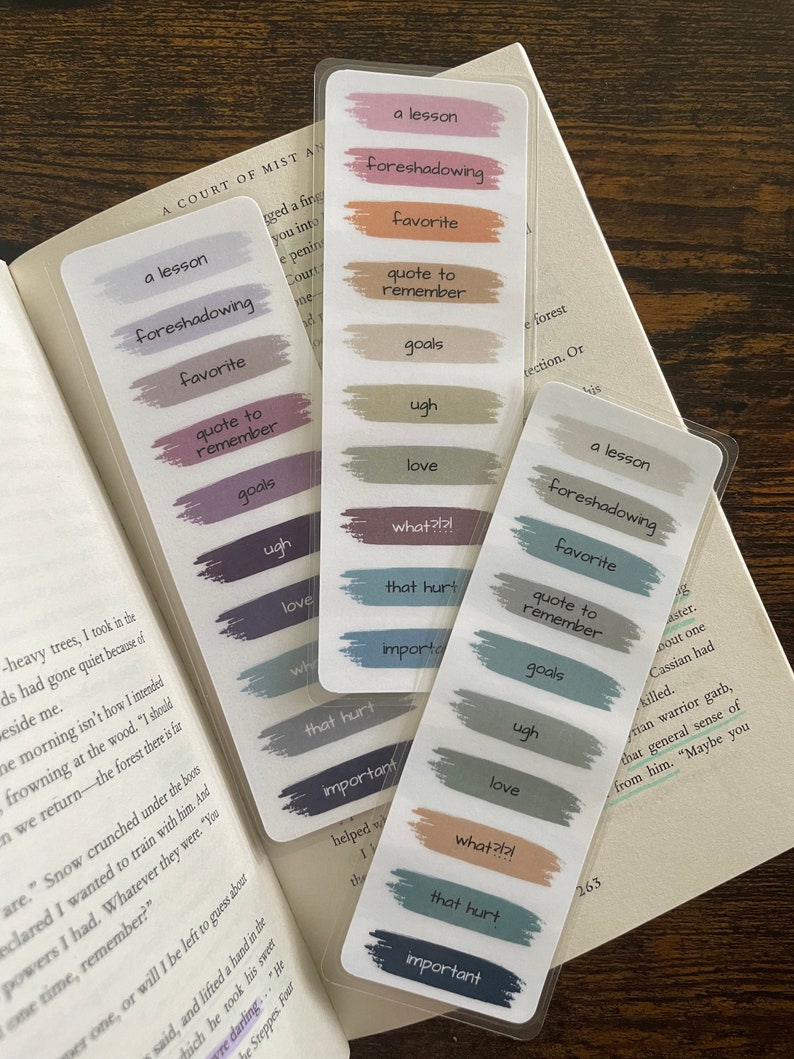 A COURT OF MIST AN
a lesson
foreshadowing
favorite
quote to
remember
goals
ugh
love
that hurt
important
a lesson
foreshadowing
favorite
quote to
remember
goals
ugh
love
what?!?!
that hurt
important
a lesson
foreshadowing
favorite
quote to
remember
goals
ugh
love
what?!?!
that hurt
important
-heavy trees, I took in the
ds had gone quiet because of
beside me.
ne morning isn't how I intended
, frowning at the wood. "I should
n we return—the forest there is far
are." Snow crunched under the boots
eclared I wanted to train with him. And
powers I had. Whatever they were. "You
one time, remember?"
ner one, or will I be left to guess about
s said, and lifted a hand in the
which he took his sweet
're darling . . ." He
he Steppes. Four
gged a fing
you into
e penin
Court
one—
e forest
tection. Or
his
ng
aster.
bout one
Cassian had
killed.
rian warrior garb,
that general sense of
from him. "Maybe you
helped wh
I
the
263